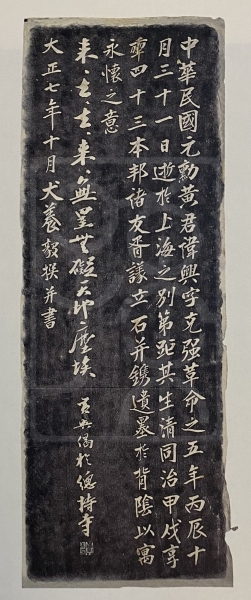 中華民國元勳黃君諱興字克強革命之五年丙辰十
月三十一日逝於上海之別第距其生清同治甲戌享
年四十三本邦諸友胥謀立石并鐫遺墨於背陰以寓
永懷之意
来〻去〻去〻来〻無罣無礙天地塵埃
黄興偈於總持寺
大正七年十月犬養毅撰并書